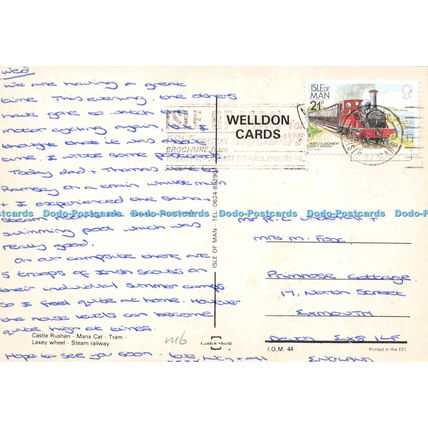 Wed
We are having a great
time. This evening, the others
have gone to watch
motor cycling again but I
thought that it was about
time I wrote some postcards
Today dad + Thomas went to
Ramsey on a train whilst mum
+ I experienced the
swimming pool which was
really good.
On our campsite there are
5 troops of Irish scouts on
their individual summer camps
so I feel quite at home. However
the noise levels can become
quite high at times.
Hope to see you soon. love
Castle Rushen - Manx Cat - Tram -
Laxey wheel - Steam railway.
WELLDON
CARDS
ISLE OF MAN TEL. 0624
I.O.M. 44
Printed in the EEC
ISLE OF
MAN
21p
BROCHURE from
Mrs M. Fox,
Primrose Cottage
17, North Street
EXMOUTH
Devon EX8 1LF
ENGLAND
m6
Golden Shield
Dodo-Postcards Dodo-Postcards Dodo-Postcards Dodo-Postcards